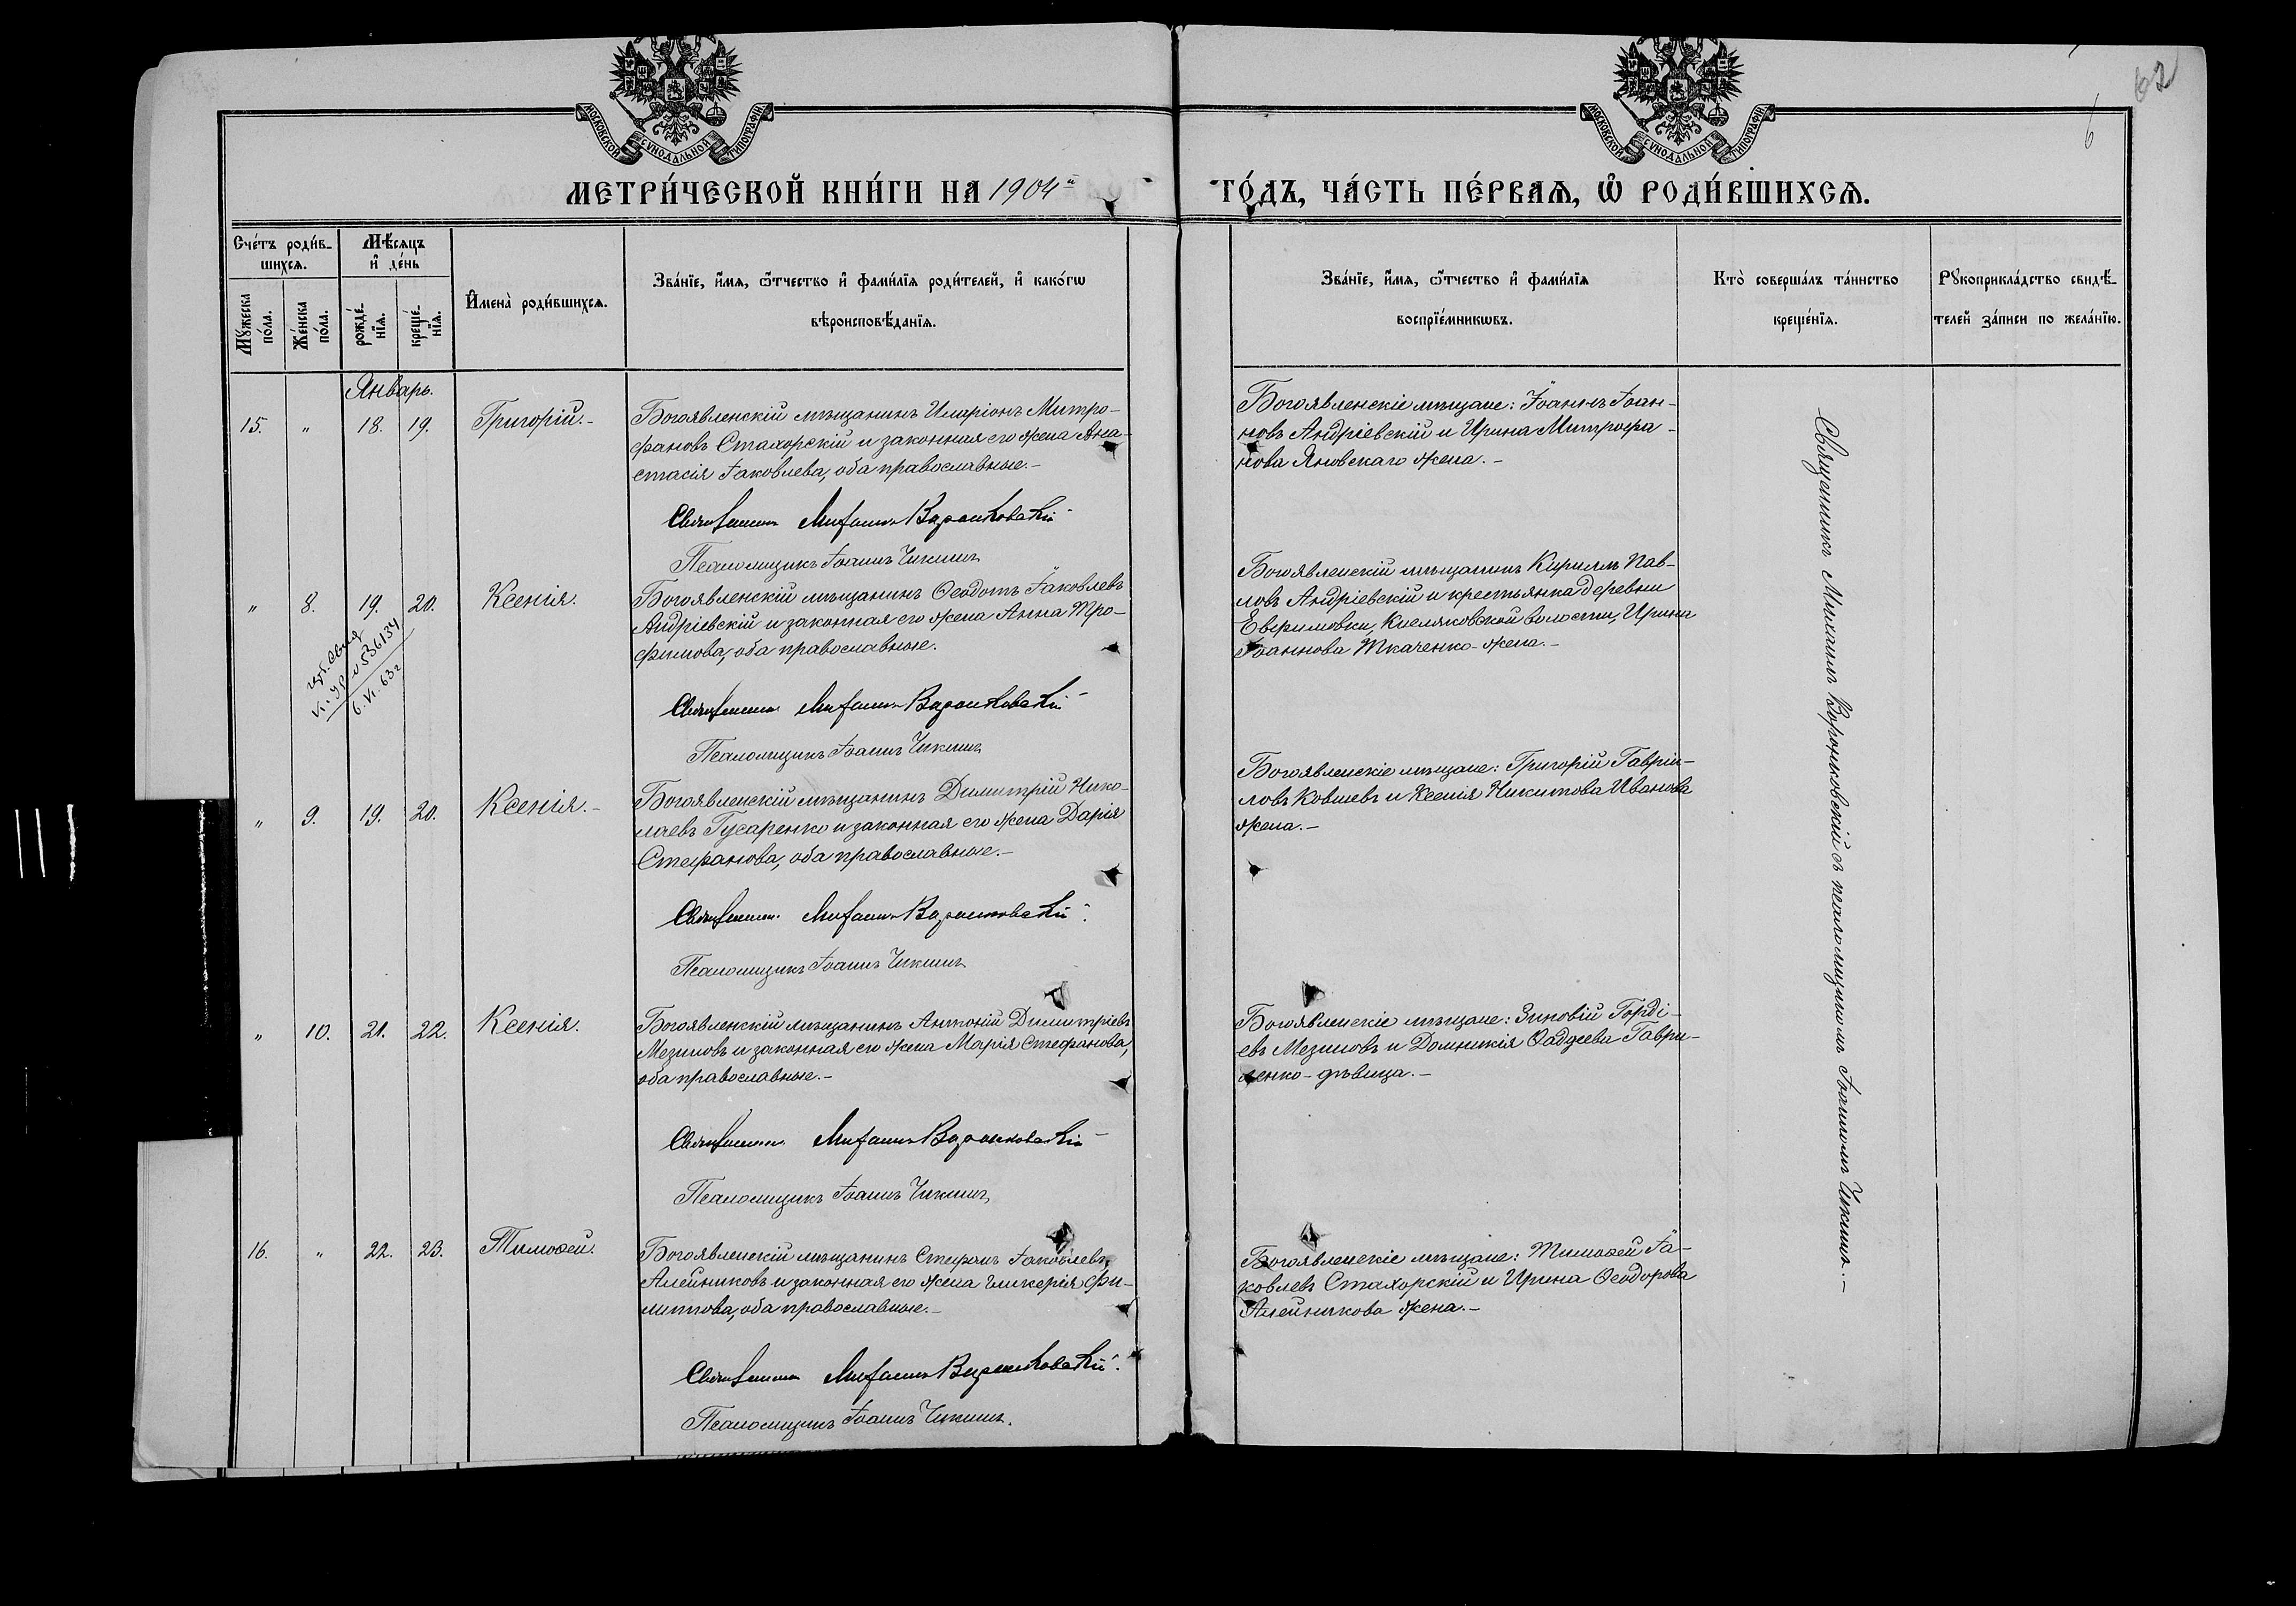 62
6
МОСКОВСКОЙ СѴНОДАЛЬНОЙ ТИПОГРАФІИ
МОСКОВСКОЙ СѴНОДАЛЬНОЙ ТИПОГРАФІИ
МЕТРИ́ЧЕСКОЙ КНИ́ГИ НА 1904й ГО́ДЪ, ЧА́СТЬ ПЕ́РВАѦ, Ѡ҆ РОДИ́ВШИХСѦ.
Сче́тъ роди́в-
шихсѧ.
Мѣ́сяцъ
и҆ де́нь
Мꙋ́жеска
по́ла.
Же́нска
по́ла.
рожде́-
нїѧ.
креще́-
нїѧ.
И҆мена̀ роди́вшихсѧ.
Зва́нїе, и҆́мѧ, ѻ҆́тчество и҆ фами́лїѧ роди́телей, и҆ како́гѡ
вѣроисповѣ́данїѧ.
Зва́нїе, и҆́мѧ, ѻ҆́тчество и҆ фами́лїѧ
воспрїе́мникѡвъ.
Кто̀ соверша́лъ та́инство
креще́нїѧ.
Рꙋкоприкла́дство свидѣ́-
телей за́писи по жела́нїю.
Январь.
15. " 18. 19. Григорій.-
Богоявленскій мѣщанинъ Иларіонъ Митро-
фановъ Стахорскій и законная его жена Ана-
стасія Іаковлева, оба православные.-
Священникъ Михаилъ Воронковскій
Псаломщикъ Іоаннъ Чикинъ
Богоявленскіе мѣщане: Іоаннъ Іоан-
новъ Андріевскій и Ирина Митрофа-
нова Яновскаго жена.-
" 8. 19. 20. Ксенія.
536134
Богоявленскій мѣщанинъ Ѳеодотъ Іаковлевъ
Андріевскій и законная его жена Анна Тро-
фимова, оба православные.
Священникъ Михаилъ Воронковскій
Псаломщикъ Іоаннъ Чикинъ
Богоявленскій мѣщанинъ Кириллъ Пав-
ловъ Андріевскій и крестьянка деревни
Ефимовки, Кисляковской волости, Ирина
Іоаннова Ткаченко-жена.-
" 9. 19. 20. Ксенія.-
Богоявленскій мѣщанинъ Димитрій Нико-
лаевъ Гусаренко и законная его жена Дарія
Стефанова, оба православные.-
Священникъ Михаилъ Воронковскій
Псаломщикъ Іоаннъ Чикинъ
Богоявленскіе мѣщане: Григорій Гавріи-
ловъ Ковшевъ и Ксенія Никитова Иванова
жена.-
" 10. 21. 22. Ксенія.
Богоявленскій мѣщанинъ Антоній Димитріевъ
Мезиновъ и законная его жена Марія Стефанова,
оба православные.-
Священникъ Михаилъ Воронковскій
Псаломщикъ Іоаннъ Чикинъ
Богоявленскіе мѣщане: Зиновій Горді-
евъ Мезиновъ и Домникія Ѳаддеева Гаври-
ленко-дѣвица.-
16. " 22. 23. Тимоѳей.
Богоявленскій мѣщанинъ Стефанъ Іаковлевъ
Алейниковъ и законная его жена Гликерія Фи-
липпова, оба православные.-
Священникъ Михаилъ Воронковскій
Псаломщикъ Іоаннъ Чикинъ.
Богоявленскіе мѣщане: Тимоѳей Іа-
ковлевъ Стахорскій и Ирина Ѳеодорова
Алейникова жена.-
Священникъ Михаилъ Воронковскій съ псаломщикомъ Іоанномъ Чикинъ.-